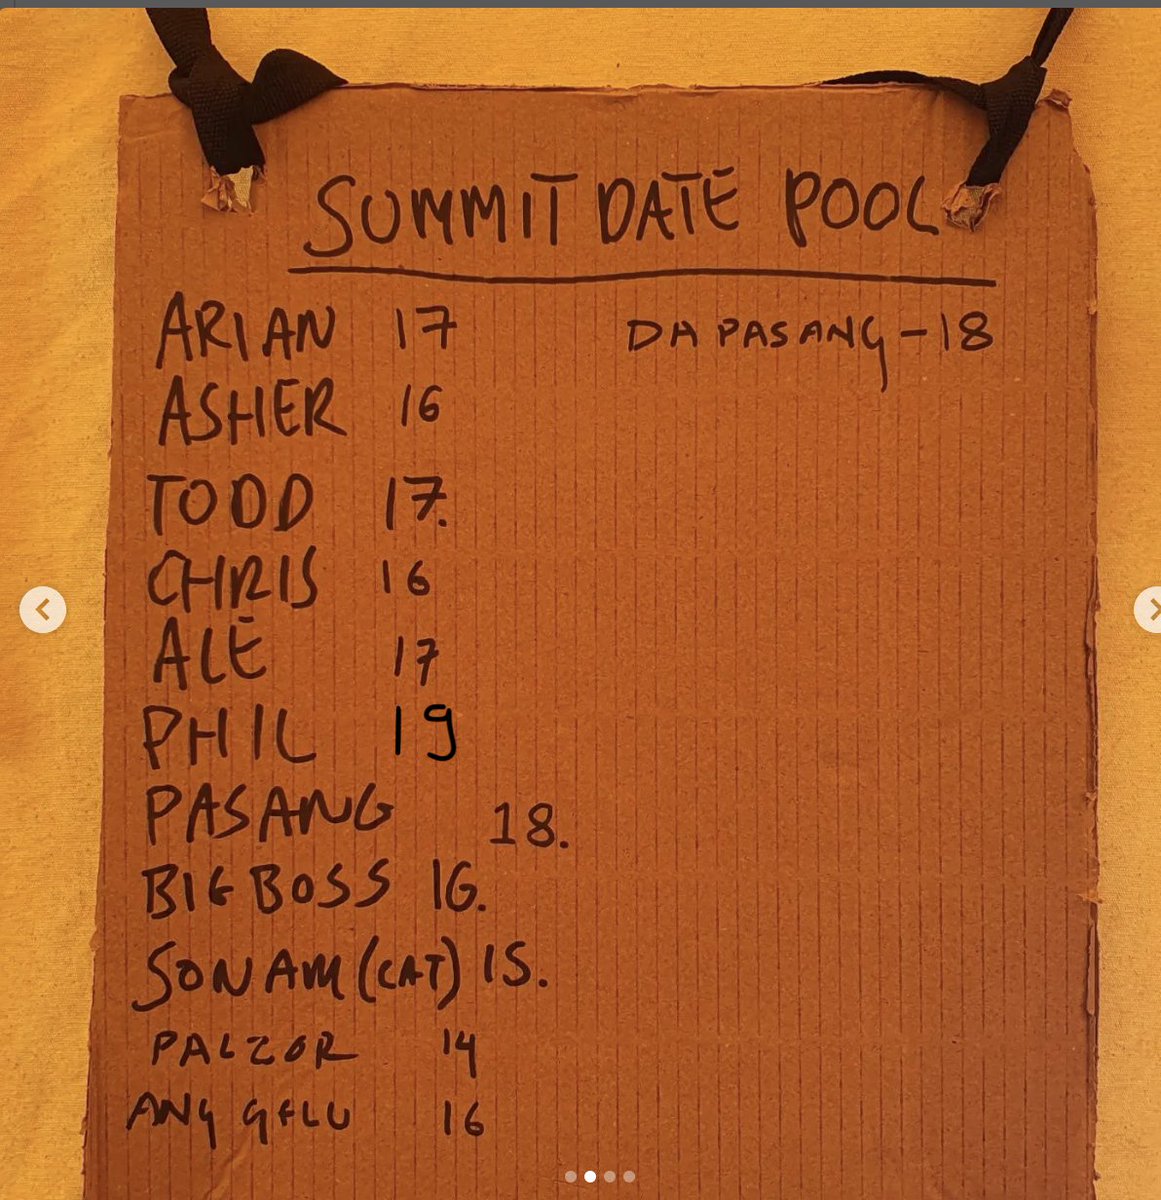 SUMMIT DATE POOL
ARIAN 17
ASHER 16
TODD 17.
CHRIS 16
ALE 17
PHIL 19
PASANG 18.
BIG BOSS 16.
SONAM (CAT) 15.
PALZOR 14
ANG GELU 16
DA PASANG - 18